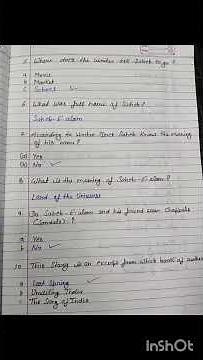 5. Where does the writer tell Saheb to go?
a. Movie
b. Market
c. School
6. What was full name of Saheb?
Saheb-E-alam
7. According to Writer Does Saheb Knows the meaning
of his name?
(a) Yes
(b) No
8. What is the meaning of Saheb-E-alam?
Lord of the Universe
9. Do Saheb-E-alam and his friend wear Chappals
(Sandals)?
a. Yes
b. No
10. This Story is an excerpt from which book of author
a. Lost Spring
b.
c. The Song of India
Made With
InShOt